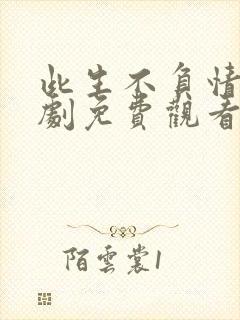 此生不負情
劇免費觀看
陌雲裳1